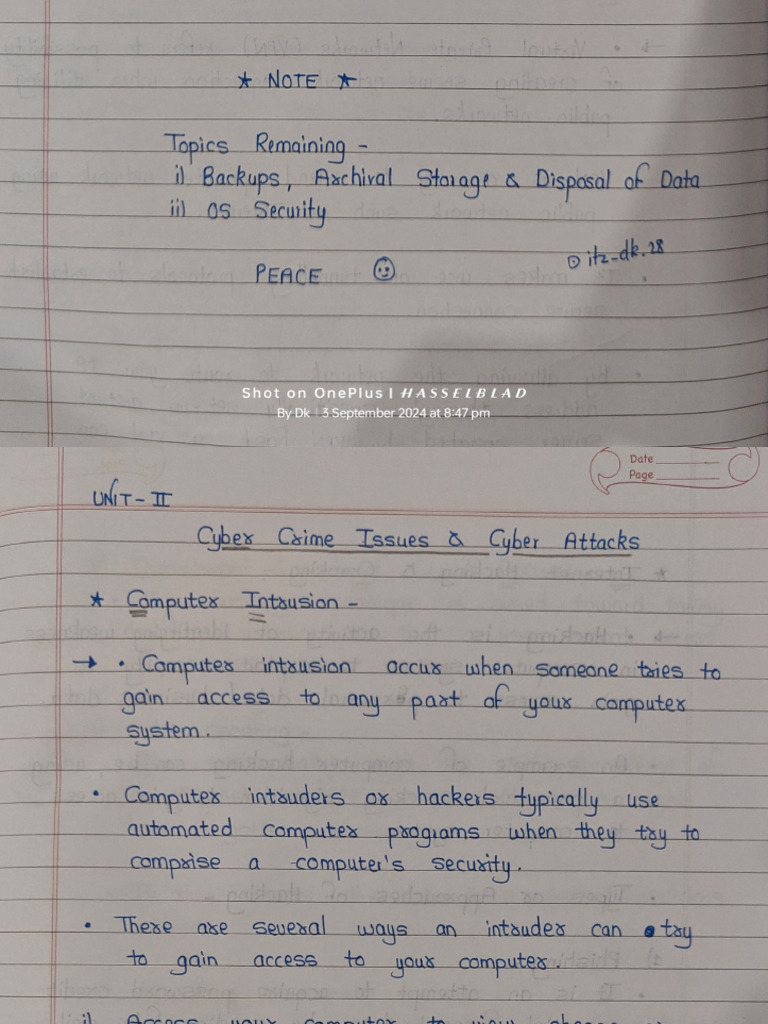 ★ NOTE ★
Topics Remaining -
i) Backups, Archival Storage & Disposal of Data
ii) OS Security
PEACE
itz_dk.28
Shot on OnePlus | HASSELBLAD
By Dk | 3 September 2024 at 8:47 pm
Date
Page
UNIT-II
Cyber Crime Issues & Cyber Attacks
★ Computer Intrusion -
→ • Computer intrusion occur when someone tries to
gain access to any part of your computer
system.
• Computer intruders or hackers typically use
automated computer programs when they try to
comprise a computer's security.
• There are several ways an intruder can try
to gain access to your computer.
i) Access your computer to view